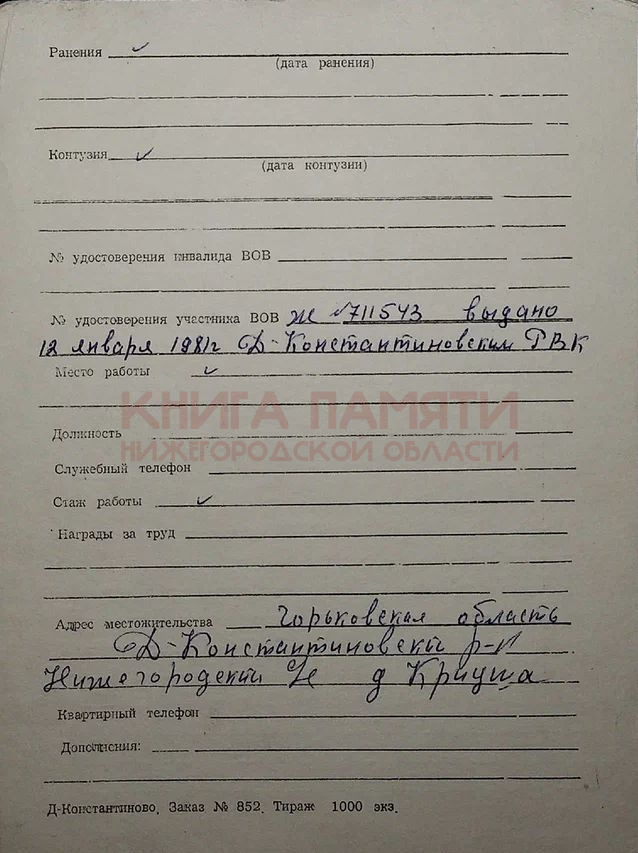 Ранения ✓
(дата ранения)
Контузия ✓
(дата контузии)
№ удостоверения инвалида ВОВ
№ удостоверения участника ВОВ Ж №711543 выдано
12 января 1981г Д-Константиновским РВК
Место работы ✓
КНИГА ПАМЯТИ
Должность
НИЖЕГОРОДСКОЙ ОБЛАСТИ
Служебный телефон
Стаж работы ✓
Награды за труд
Адрес местожительства Горьковская область
Д-Константиновский р-н
Нижегородский д Криуша
Квартирный телефон
Дополнения:
Д-Константиново. Заказ № 852. Тираж 1000 экз.